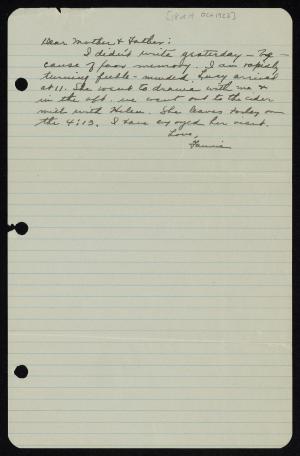 [18 Oct 1923]
Dear Mother & Father:
I didn't write yesterday - be-
cause of poor memory. I am rapidly
turning feeble-minded. Lucy arrived
at 11. She went to drama with me &
in the aft. we went out to the cider
mill with Helen. She leaves today on
the 4:13. I have enjoyed her visit.
Love,
Fannie